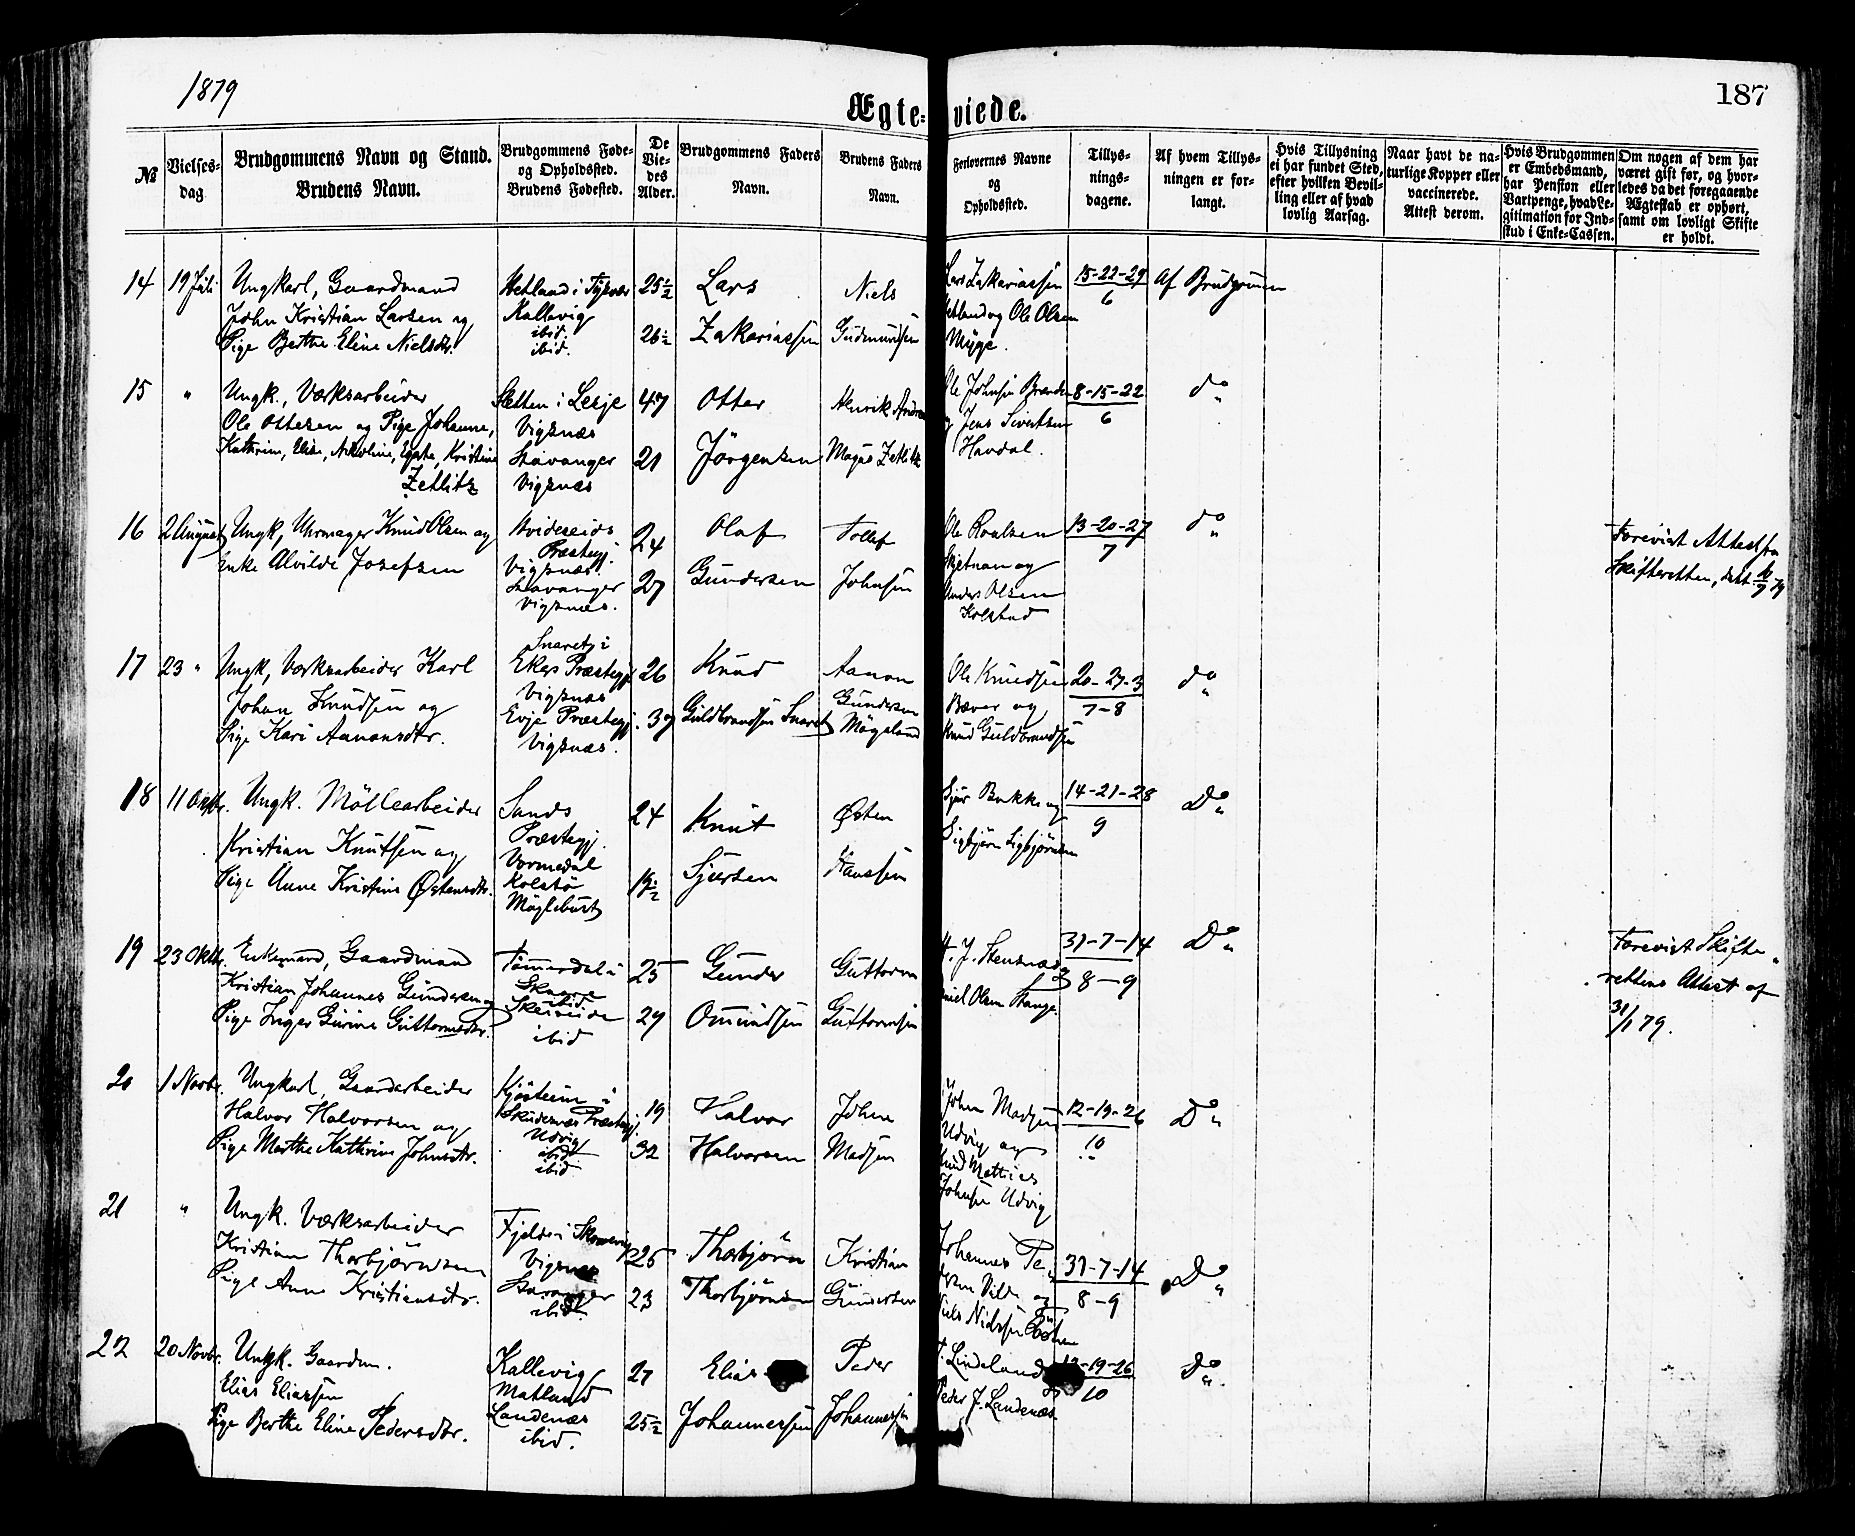 1879
Ægte- viede.
187
№
Vielses-
dag
Brudgommens Navn og Stand.
Brudens Navn.
Brudgommens Føde-
og Opholdssted.
Brudens Fødested.
De
Vie-
des
Alder.
Brudgommens Faders
Navn.
Brudens Faders
Navn.
Forlovernes Navne
og
Opholdssted.
Tillys-
nings-
dagene.
Af hvem Tillys-
ningen er for-
langt.
Hvis Tillysning
ei har fundet Sted,
efter hvilken Bevil-
ling eller af hvad
lovlig Aarsag.
Naar havt de na-
turlige Kopper eller
vaccinerede.
Attest derom.
Hvis Brudgommen
er Embedsmand,
har Pension eller
Vartpenge, hvad Le-
gitimation for Ind-
skud i Enke-Cassen.
Om nogen af dem har
været gift før, og hvor-
ledes da det foregaaende
Ægteskab er ophørt,
samt om lovligt Skifte
er holdt.
14 19 Juli
Ungkarl, Gaardmand
John Kristian Larsen og
Pige Berthe Eline Nielsdtr.
Hetland i Tysvær
Kallevig
ibid.
ibid.
25½
26½
Lars
Zakariassen
Niels
Gudmundsen
Lars Zakariassen
Hetland og Ole Olsen
Myge.
15-22-29
6
Af Brudgommen
15 "
Ungk., Værksarbeider
Ole Ottesen og Pige Johanne,
Kathrine, Elise, Kristine
Zetlitz
Sletten i Lesje
Vigsnæs
Stavanger
Vigsnæs
47
21
Otter
Jörgensen
Henrik
Magns Zetlitz
Ole Johnsen
og Jens Sivertsen
Havdal.
8-15-22
6
do "
16 2 August
Ungk, Uhrmager Knud Olsen og
Enke Alvilde Josefsen
Hvidesejds
Præstegj.
Vigsnæs.
Stavanger
Vigsnæs.
24
27
Olaf
Gundersen
Tollef
Johnsen
Ole Roalsen
og
Anders Olsen
Kolstad
13-20-27
7
do "
Forevist Attest fra
Skifteretten, dat.
17 23 "
Ungk, Værksarbeider Karl
Johan Knudsen og
Pige Kari Aanonsdtr.
i
Præstegj
Vigsnæs
Evje Præstegj.
Vigsnæs.
26
37
Knud
Guldbrandsen
Aanon
Gundersen
Ole Knudsen
Bæver og
Knud Guldbrandsen
20-27-3
7-8
do "
18 11 Oktbr.
Ungk. Möllearbeider
Kristian Knutsen og
Pige Anne Kristine Østensdtr.
Sands
Præstegj.
Vormedal
Kolstø
24
19½
Knut
Sjursen
Østen
Hanssen
Sjur Bakke og
Sigbjørn Sigbjørnsen
14-21-28
9
Do "
19 23 Oktbr.
Enkemand, Gaardmand
Kristian Johannes Gundersen og
Pige Inger Gurine Guttormsdtr.
i
Skaare
ibid
ibid
25
29
Gunder
Omundsen
Guttorm
Guttormsen
H. J. Stensnæs
og
Daniel Olsen Stange.
31-7-14
8-9
Do "
Forevist Skifte-
rettens Attest af
31/1 79.
20 1 Novbr.
Ungkarl, Gaardarbeider
Halvor Halvorsen og
Pige Marthe Kathrine Johnsdtr.
i
Skudenæs Præstegj.
Udvig
ibid
ibid
19
32
Halvor
Halvorsen
John
Madsen
John Madsen
Udvig og
Knud Mathias
Johnsen Udvig
12-19-26
10
Do "
21 "
Ungk. Værksarbeider
Kristian Thorbjörnsen
Pige Anne Kristiansdtr.
Fjelde i
Vigsnæs
Stavanger
ibid.
25
23
Thorbjørn
Thorbjörnsen
Kristian
Gundersen
Johannes Pe-
dersen og
Niels Nielssen
31-7-14
8-9
Do "
22 20 Novbr.
Ungk. Gaardm.
Elias Eliassen
Pige Berthe Eline Pedersdtr.
Kallevig
Matland
Landenæs
ibid.
27
25½
Elias
Johannessen
Peder
Johannessen
Lindeland
og
Peder J. Landenæs
12-19-26
10
Do "